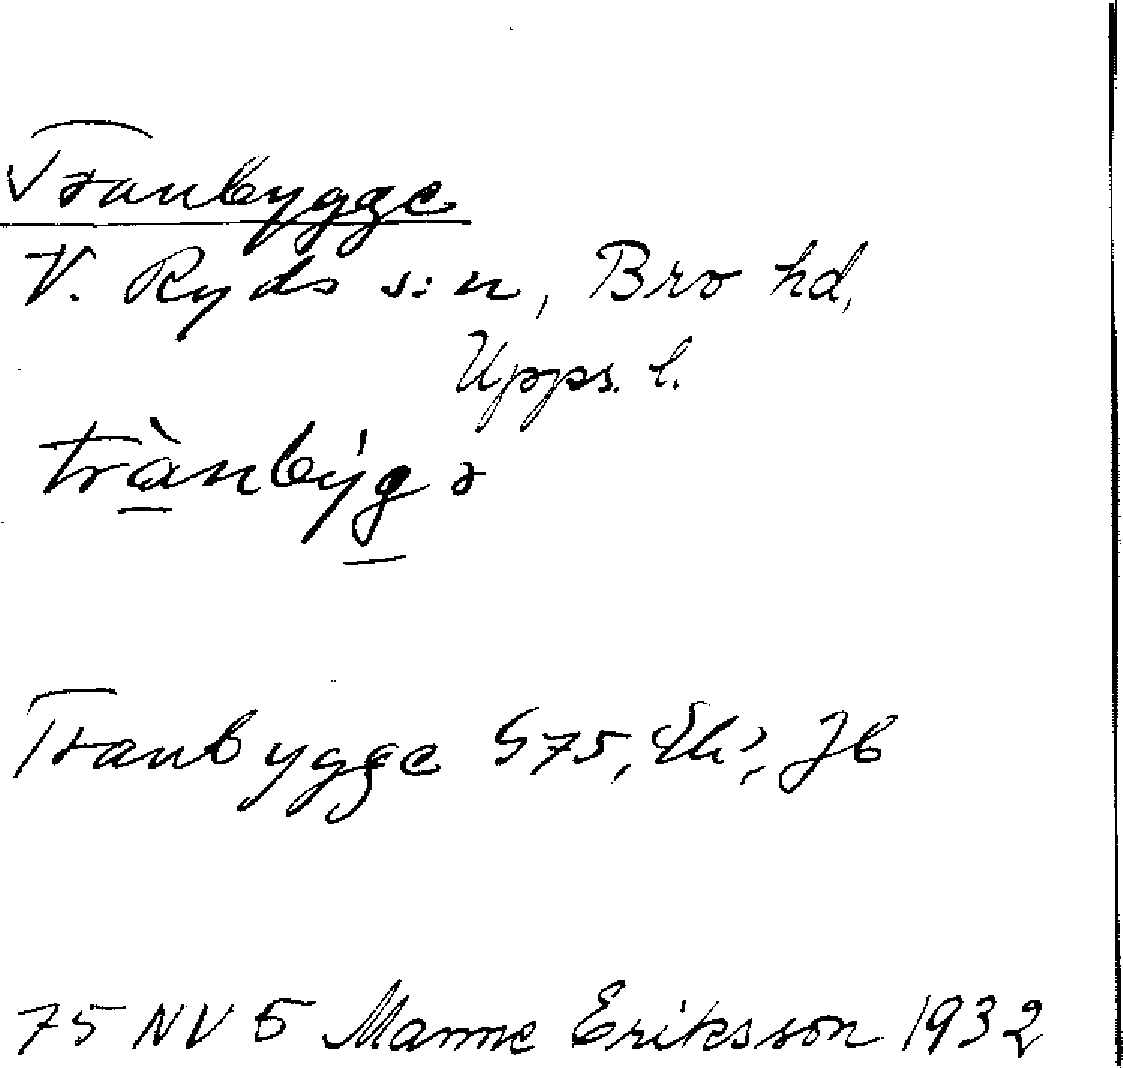 Tranbygge
V. Ryds s:n, Bro hd,
Upps. l.
trànbýgə
Tranbygge G75, Ek?, JB
75 NV 5 Manne Eriksson 1932